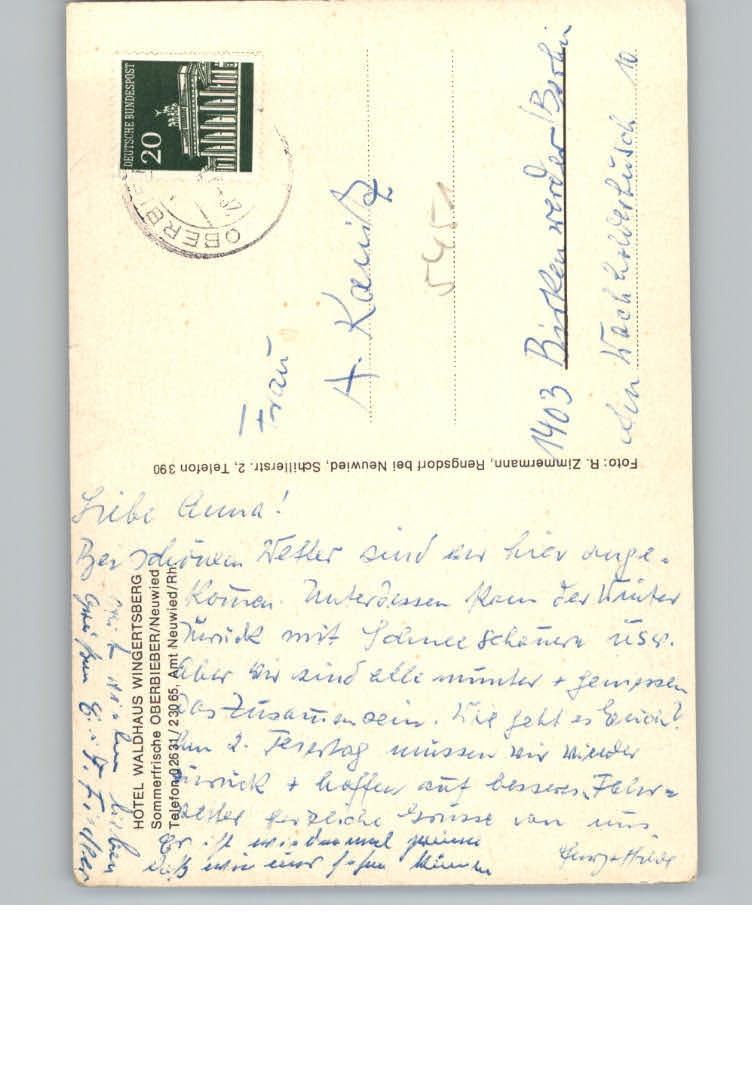 Liebe Anna!
Bei schönem Wetter sind wir hier ange-
komen. Unterdessen kam der Winter
zurück mit Schneeschauern usw.
Aber wir sind alle munter + geniessen
das Zusamensein. Wie geht es Euch?
Am 2. Feiertag müssen wir wieder
zurück + hoffen auf besseres Fahr-
wetter herzliche Grüsse von uns
Georg + Hilde
Es ist wiedermal
daß wir uns sehen können
Grüßen
HOTEL WALDHAUS WINGERTSBERG
Sommerfrische OBERBIEBER/Neuwied
Telefon 02631/23065, Amt Neuwied/Rh
Foto: R. Zimmermann, Rengsdorf bei Neuwied, Schillerstr. 2, Telefon 390
DEUTSCHE BUNDESPOST
20
OBERBIE
Frau
A. Kanitz
5451
1403 Birkenwerder/Berlin
Am Wachholderbusch 10